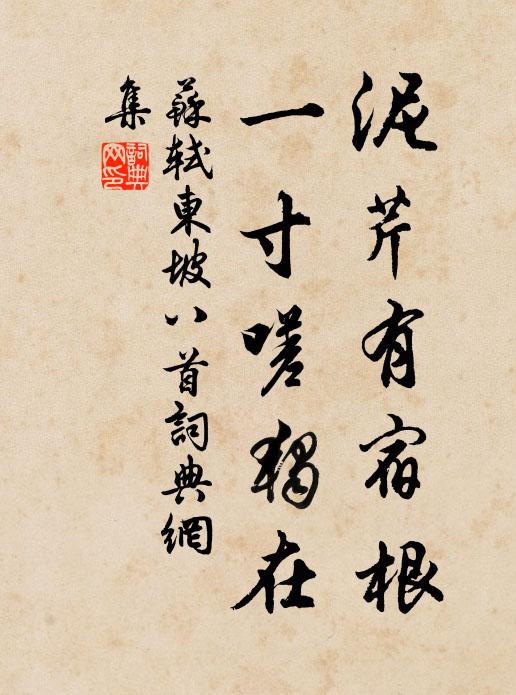 泥芹有宿根
一寸嗟獨在
蘇軾東坡八首詞典網
集
詞典網印